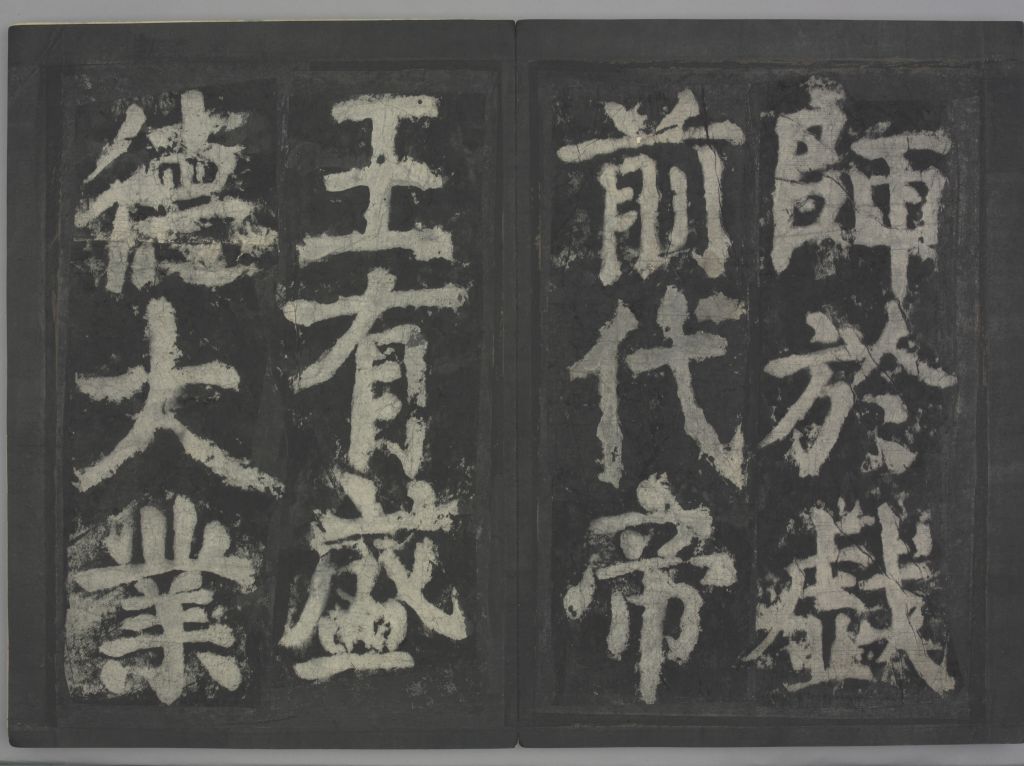 師於戲
前代帝
王有盛
德大業